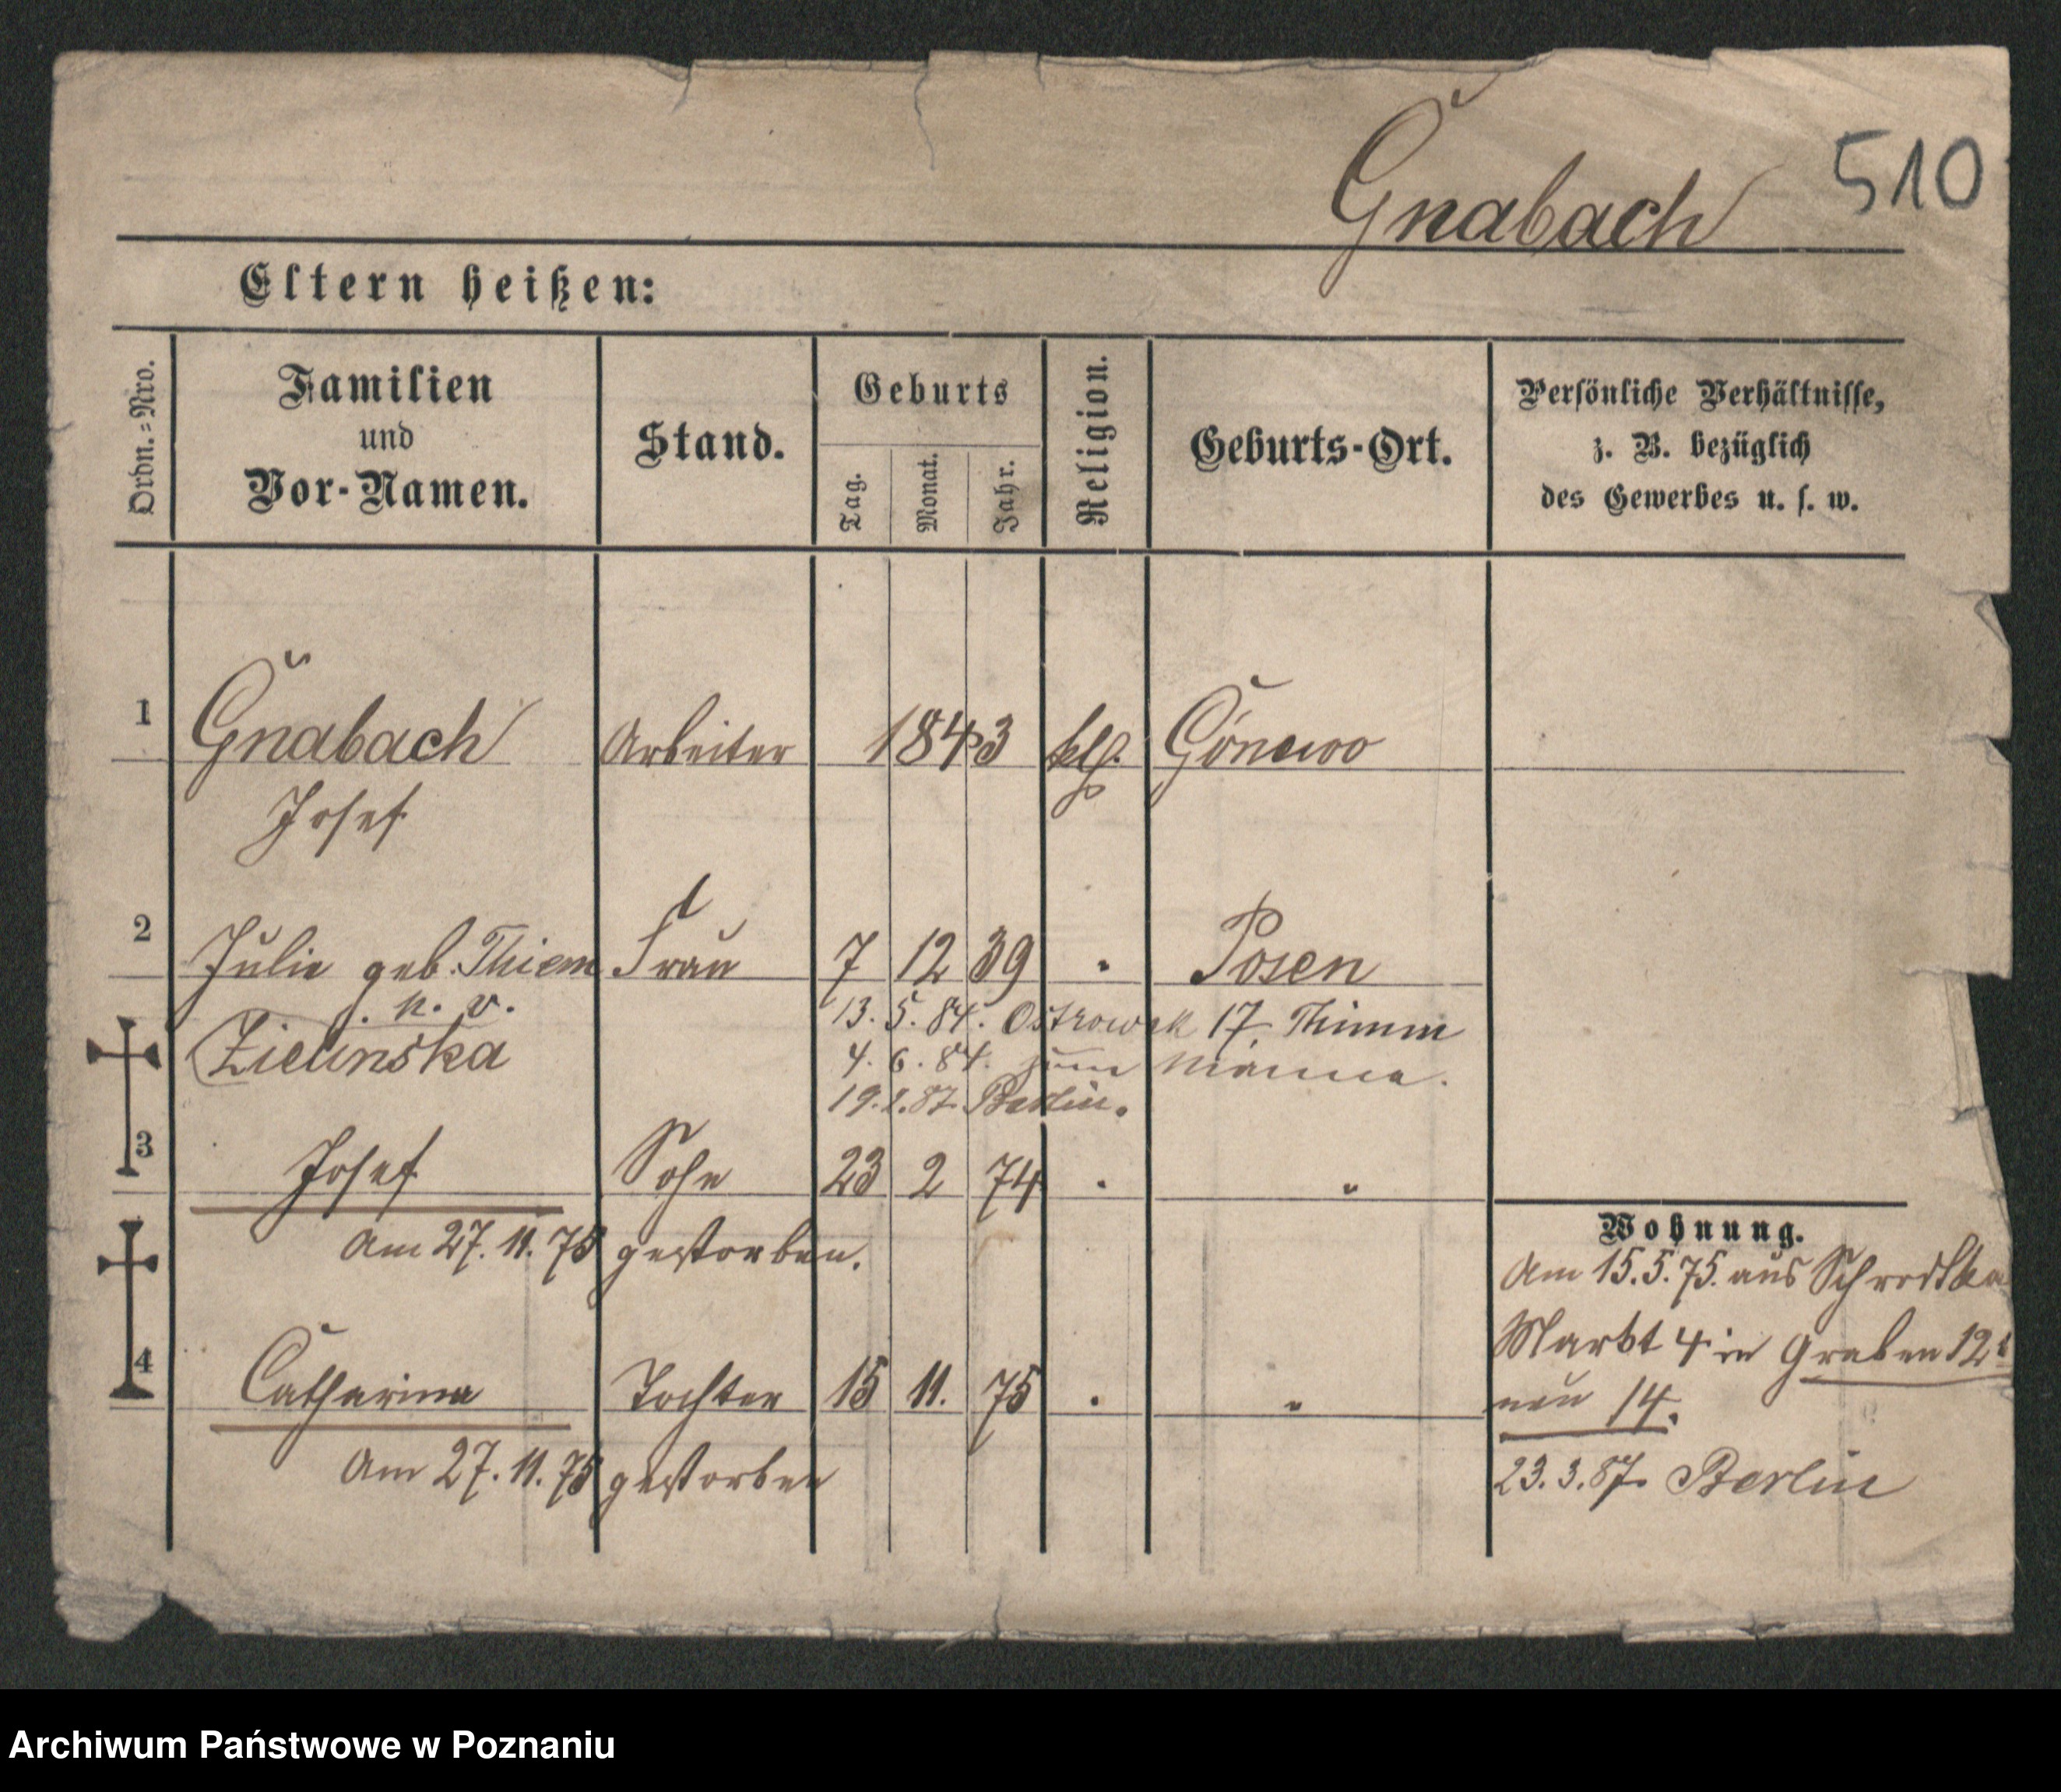 Gnabach 510
Eltern heißen:
Ordn.-Nro.
Familien
und
Vor-Namen.
Stand.
Geburts
Tag.
Monat.
Jahr.
Religion.
Geburts-Ort.
Persönliche Verhältnisse,
z. B. bezüglich
des Gewerbes u. s. w.
1 Gnabach Arbeiter 1843 ktl.
Josef
2 Julie geb. Thiem Frau 7 12 39 " Posen
n. v.
Zielinska
13. 5. 84. Ostrowek 17. Thimm
4. 6. 84. zum Manne.
87. Berlin.
3 Josef Sohn 23 2 74 " "
Am 27. 11. 75 gestorben.
4 Catharina Tochter 15 11. 75 " "
Am 27. 11. 75 gestorben
Wohnung.
Am 15. 5. 75. aus Schrodka
Markt 4 in Graben 12
neu 14.
23. 3. 87. Berlin
Archiwum Państwowe w Poznaniu